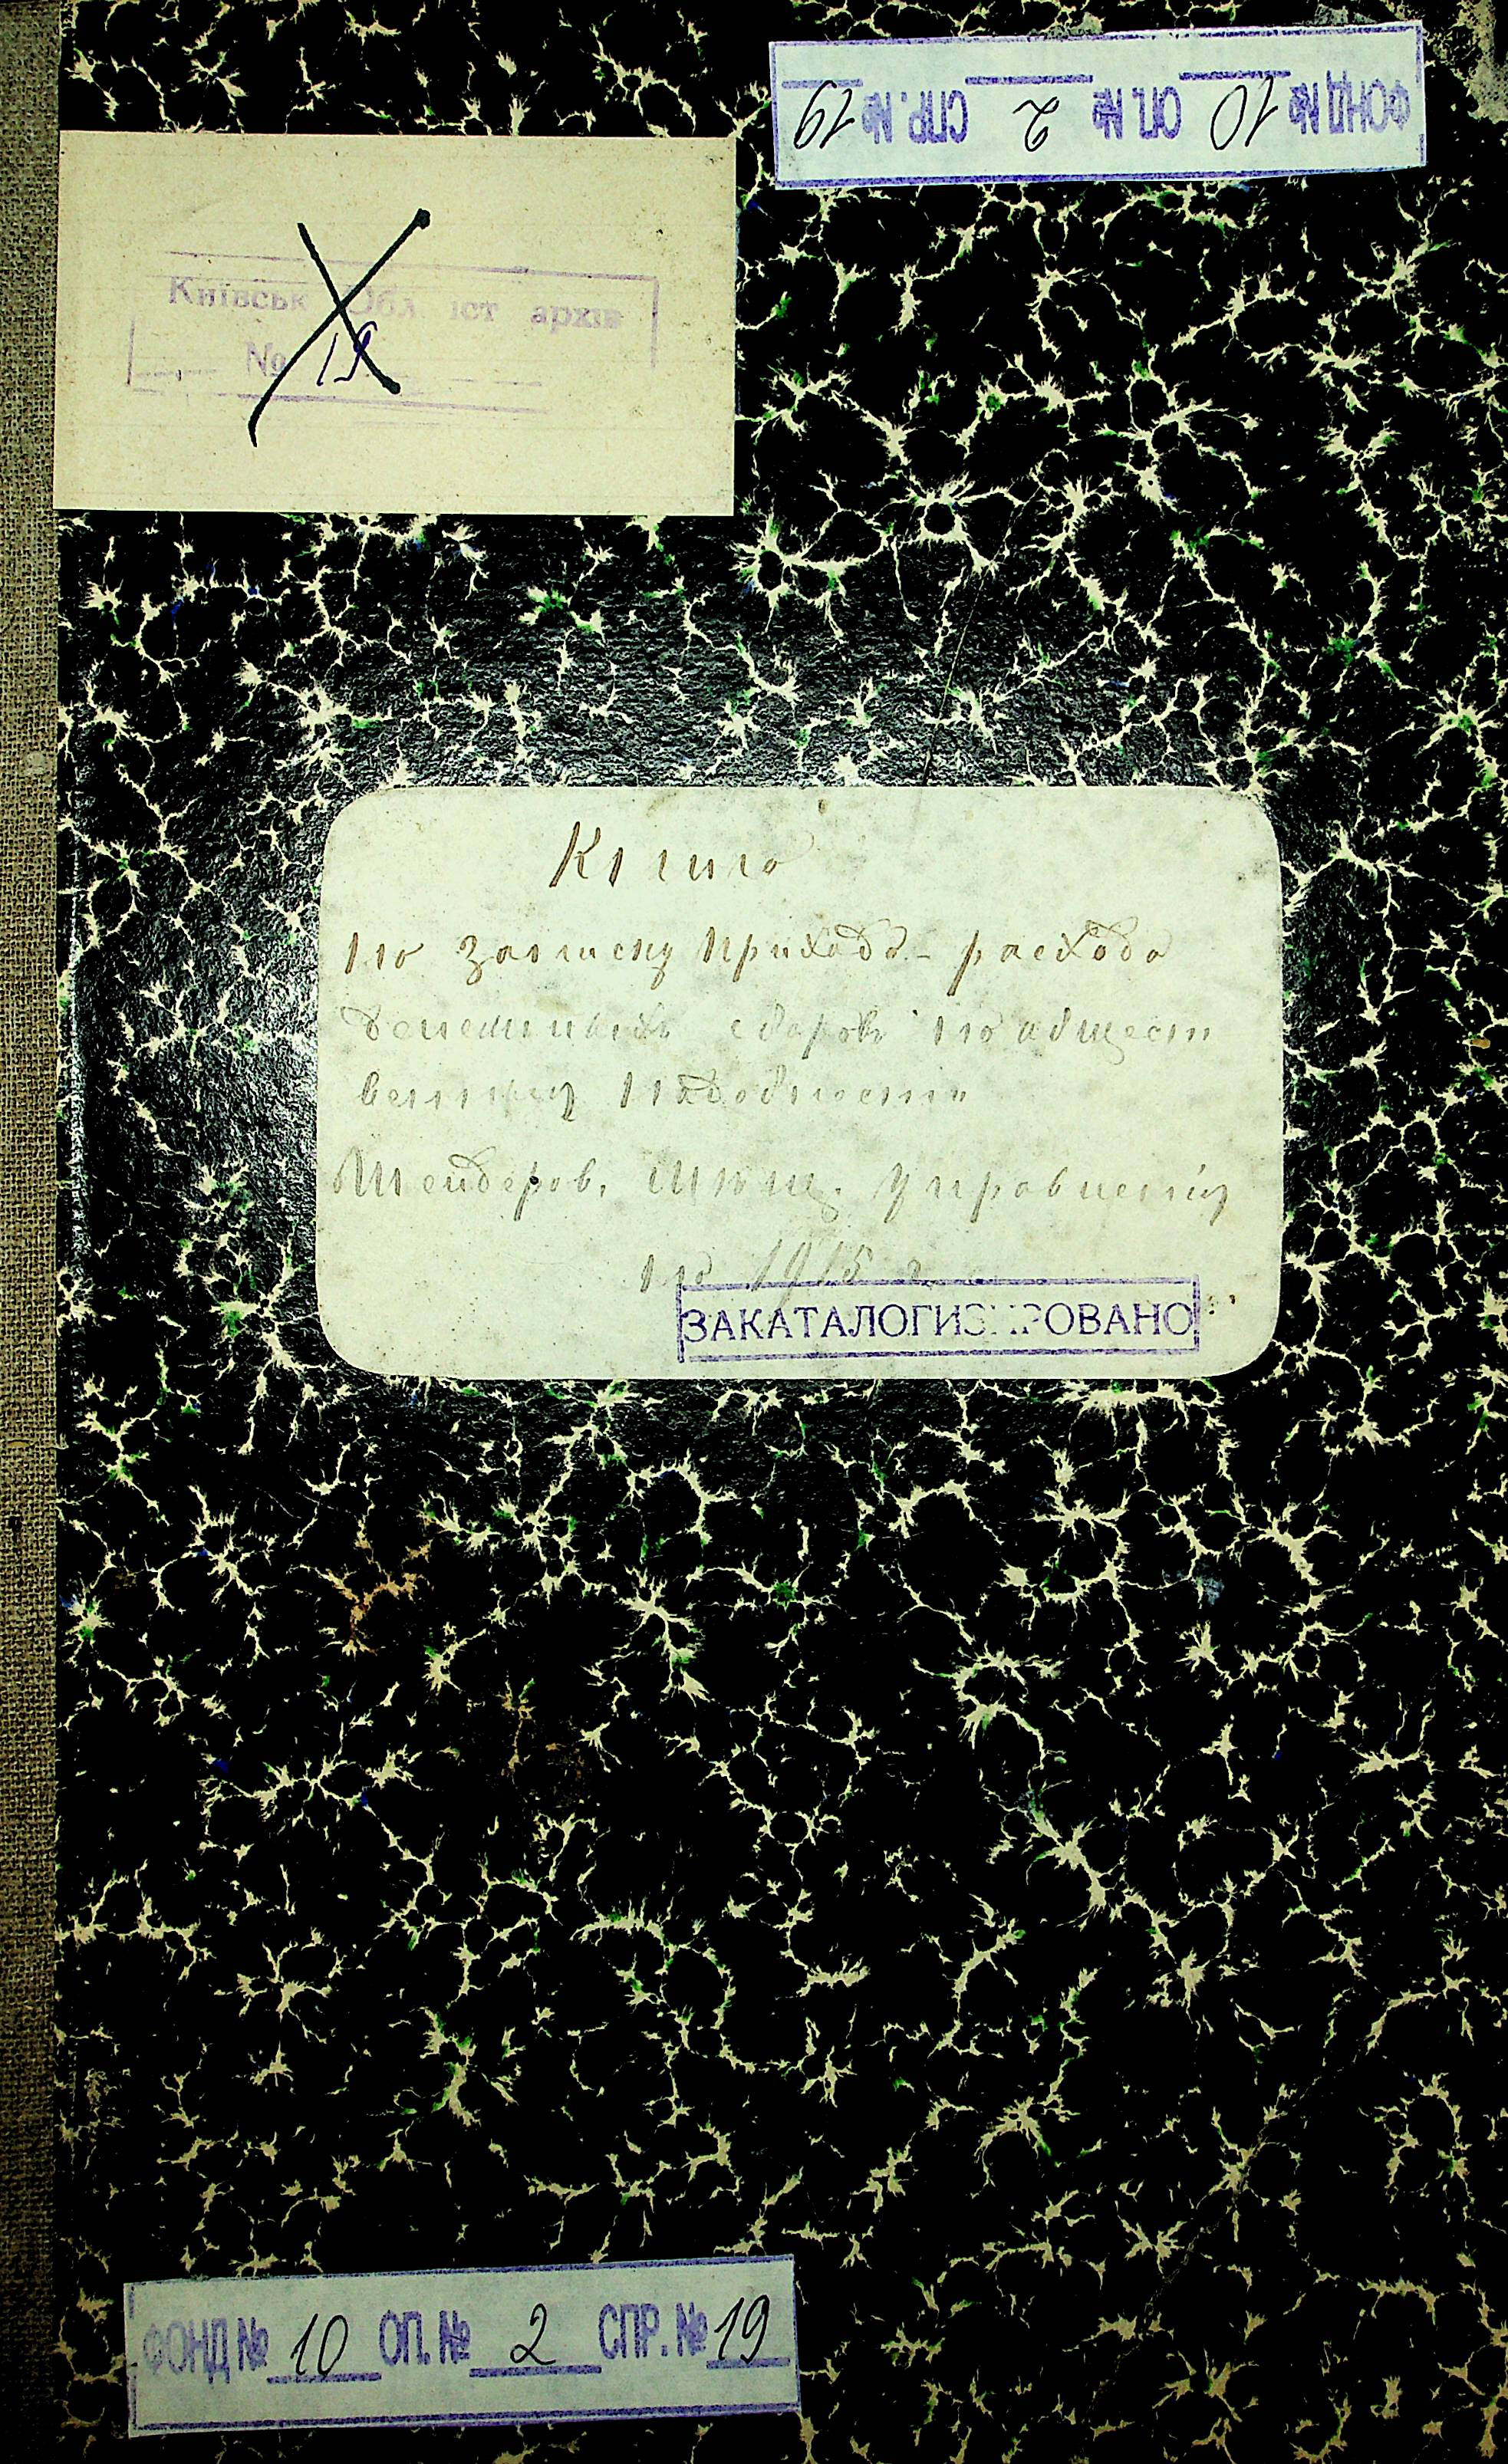 ФОНД № 10 ОП. № 2 СПР. № 19
Київськ Обл іст архів
№ 19
Книга
по записку приходъ-расхода
денежныхъ сборовъ по общест
венному надобности
Шендеров. Мѣщ. Управленію
1915 г.
ЗАКАТАЛОГИЗИРОВАНО
ФОНД № 10 ОП. № 2 СПР. № 19